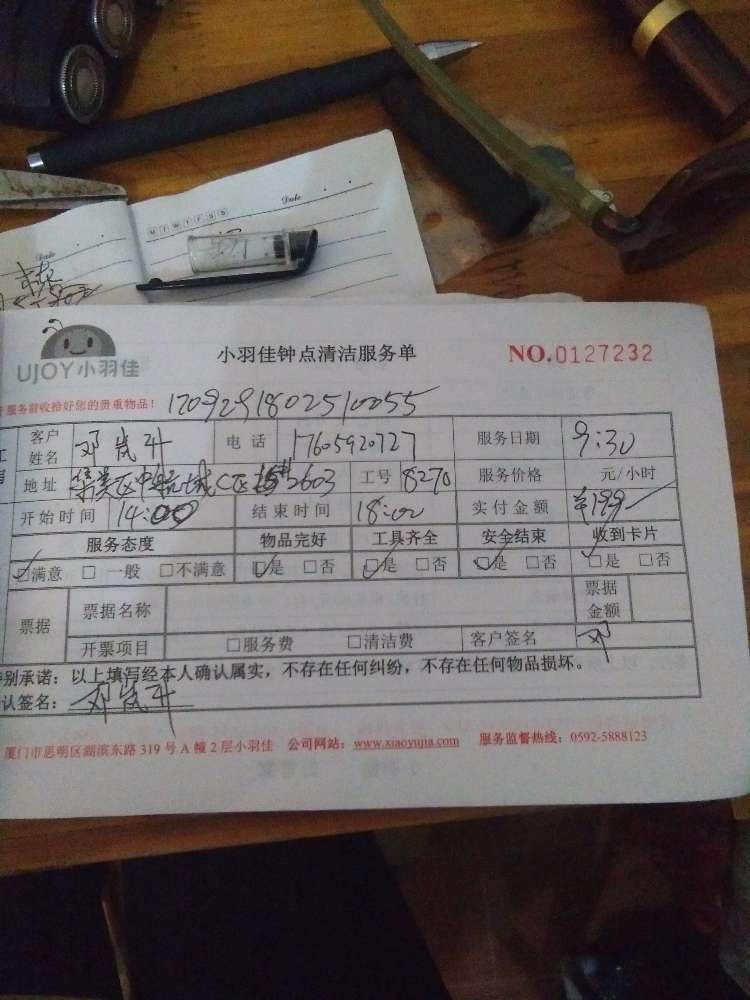 Date
M T W T F S S
Date
UJOY小羽佳
小羽佳钟点清洁服务单
NO.0127232
服务前收拾好您的贵重物品！
1709291802510055
客户姓名 邓岚升 电话 17605920727 服务日期 9:30
地址 集美区中航城C区 2603 工号 8270 服务价格 元/小时
开始时间 14:00 结束时间 18:00 实付金额 ¥199
服务态度 物品完好 工具齐全 安全结束 收到卡片
☑满意 □一般 □不满意 ☑是 □否 ☑是 □否 ☑是 □否 ☑是 □否
票据 票据名称 票据金额
开票项目 □服务费 □清洁费 客户签名 邓
特别承诺：以上填写经本人确认属实，不存在任何纠纷，不存在任何物品损坏。
确认签名：邓岚升
厦门市思明区湖滨东路 319 号 A 幢 2 层小羽佳 公司网站：www.xiaoyujia.com 服务监督热线：0592-5888123